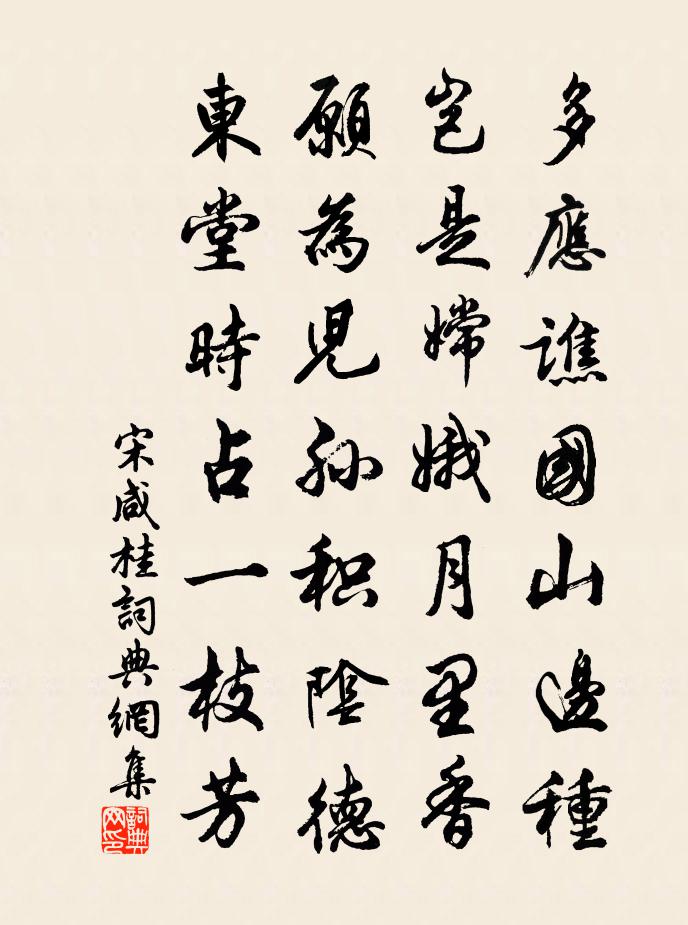 多應譙國山邊種
豈是嫦娥月里香
願為児孫积陰德
東堂時占一枝芳
宋咸桂詞典網集
詞典网印